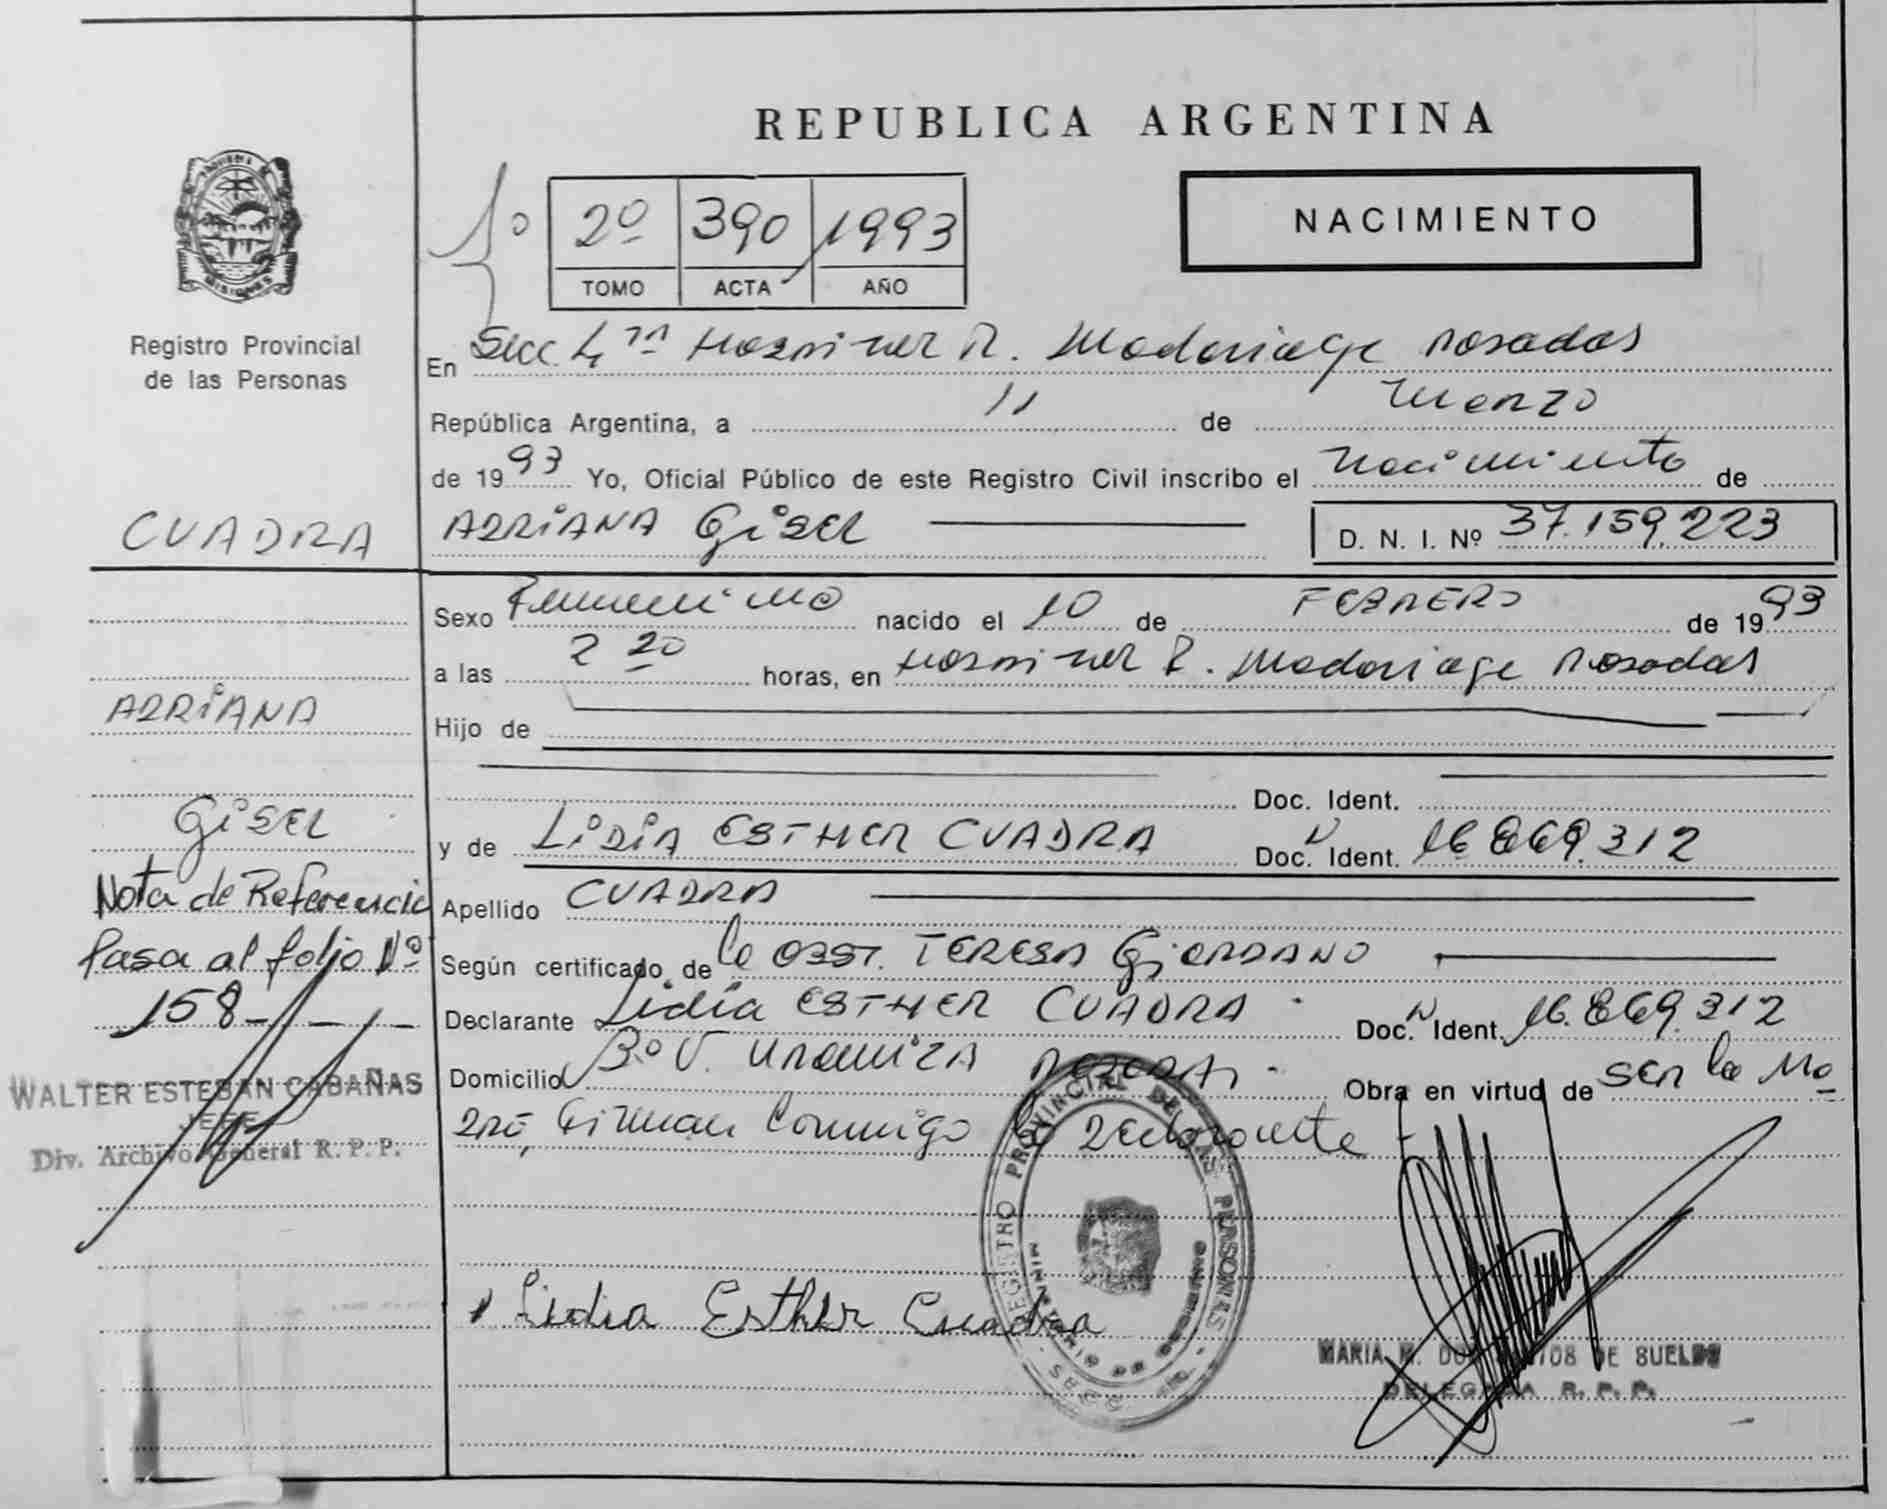 REPUBLICA ARGENTINA
NACIMIENTO
1º 2º 390 1993
TOMO ACTA AÑO
MISIONES
Registro Provincial
de las Personas
En Secc. 4ta Hospital R. Madariaga Posadas
República Argentina, a 11 de Marzo
de 1993 Yo, Oficial Público de este Registro Civil inscribo el Nacimiento de
CUADRA
ADRIANA GISEL
D. N. I. Nº 37.159.223
Sexo Femenino nacido el 10 de FEBRERO de 1993
a las 2 20 horas, en Hospital R. Madariaga Posadas
ADRIANA
Hijo de
Doc. Ident.
GISEL
y de LIDIA ESTHER CUADRA Doc. Ident. 16.869.312
Nota de Referencia
Pasa al folio Nº
158
Apellido CUADRA
Según certificado de la OBST. TERESA GIORDANO
Declarante Lidia ESTHER CUADRA Doc. Ident. 16.869.312
Domicilio Bº V. URQUIZA Obra en virtud de ser la Ma
dre, Firman conmigo la Declarante
WALTER ESTEBAN CABAÑAS
JEFE
Div. Archivo General R. P. P.
REGISTRO PROVINCIAL DE LAS PERSONAS
MINISTERIO DE GOBIERNO
Lidia Esther Cuadra
MARIA M. DOS SANTOS DE SUELDO
DELEGADA R. P. P.